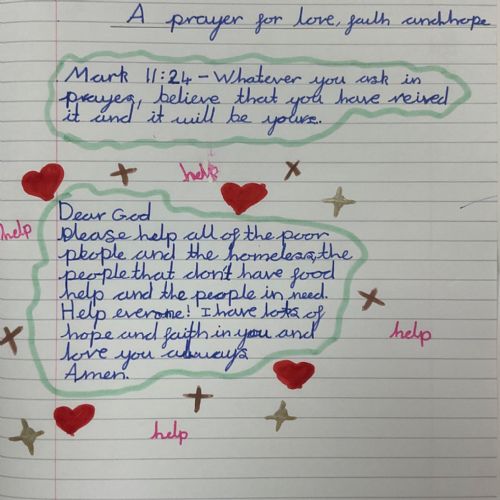 A prayer for love, faith and hope
Mark 11:24 - Whatever you ask in
prayer, believe that you have reived
it and it will be yours.
help
Dear God
please help all of the poor
help
people and the homeless, the
people that don't have food
help and the people in need.
Help everone! I have lots of
hope and faith in you and
help
love you always
Amen.
help